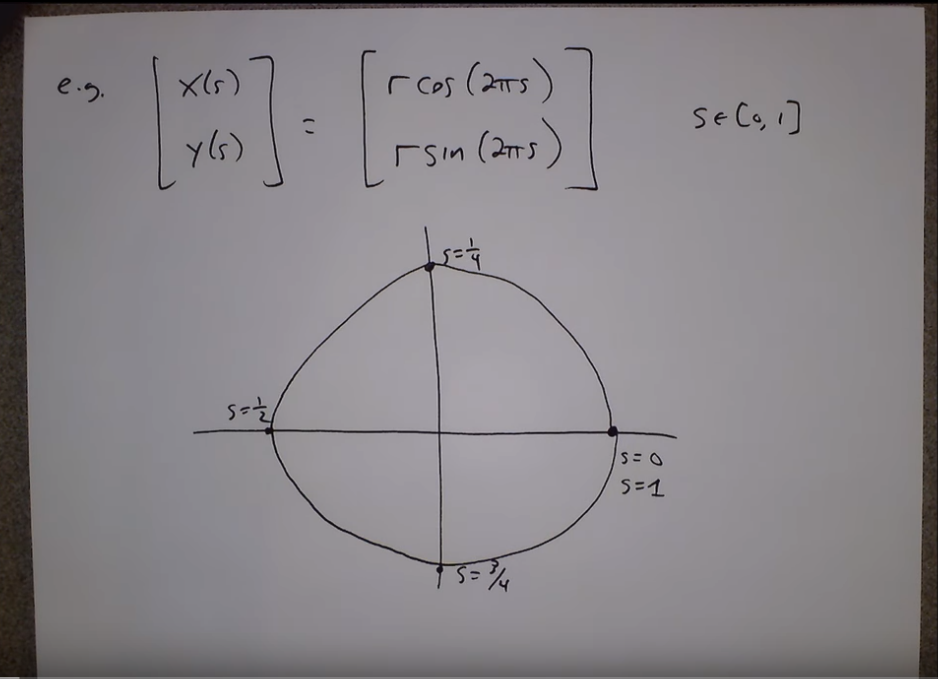 e.g. [x(s) y(s)] = [r cos (2πs) r sin (2πs)] s∈[0,1]
s=1/4
s=1/2
s=0
s=1
s=3/4